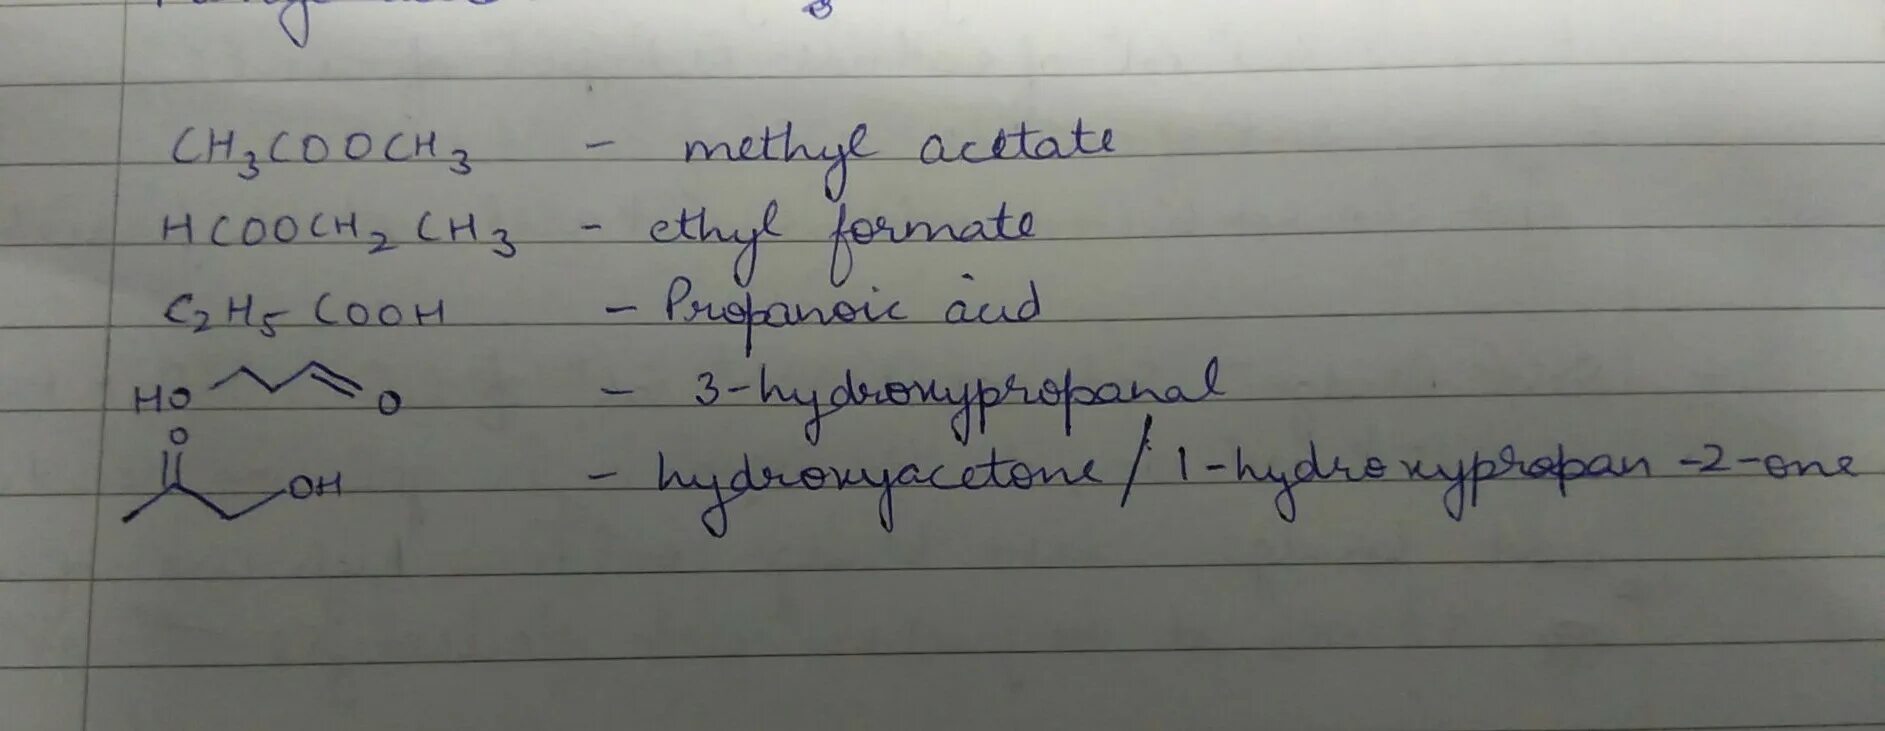 CH3COOCH3 - methyl acetate
HCOOCH2CH3 - ethyl formate
C2H5COOH - Propanoic acid
HO O - 3-hydroxypropanal
O OH - hydroxyacetone / 1-hydroxypropan-2-one